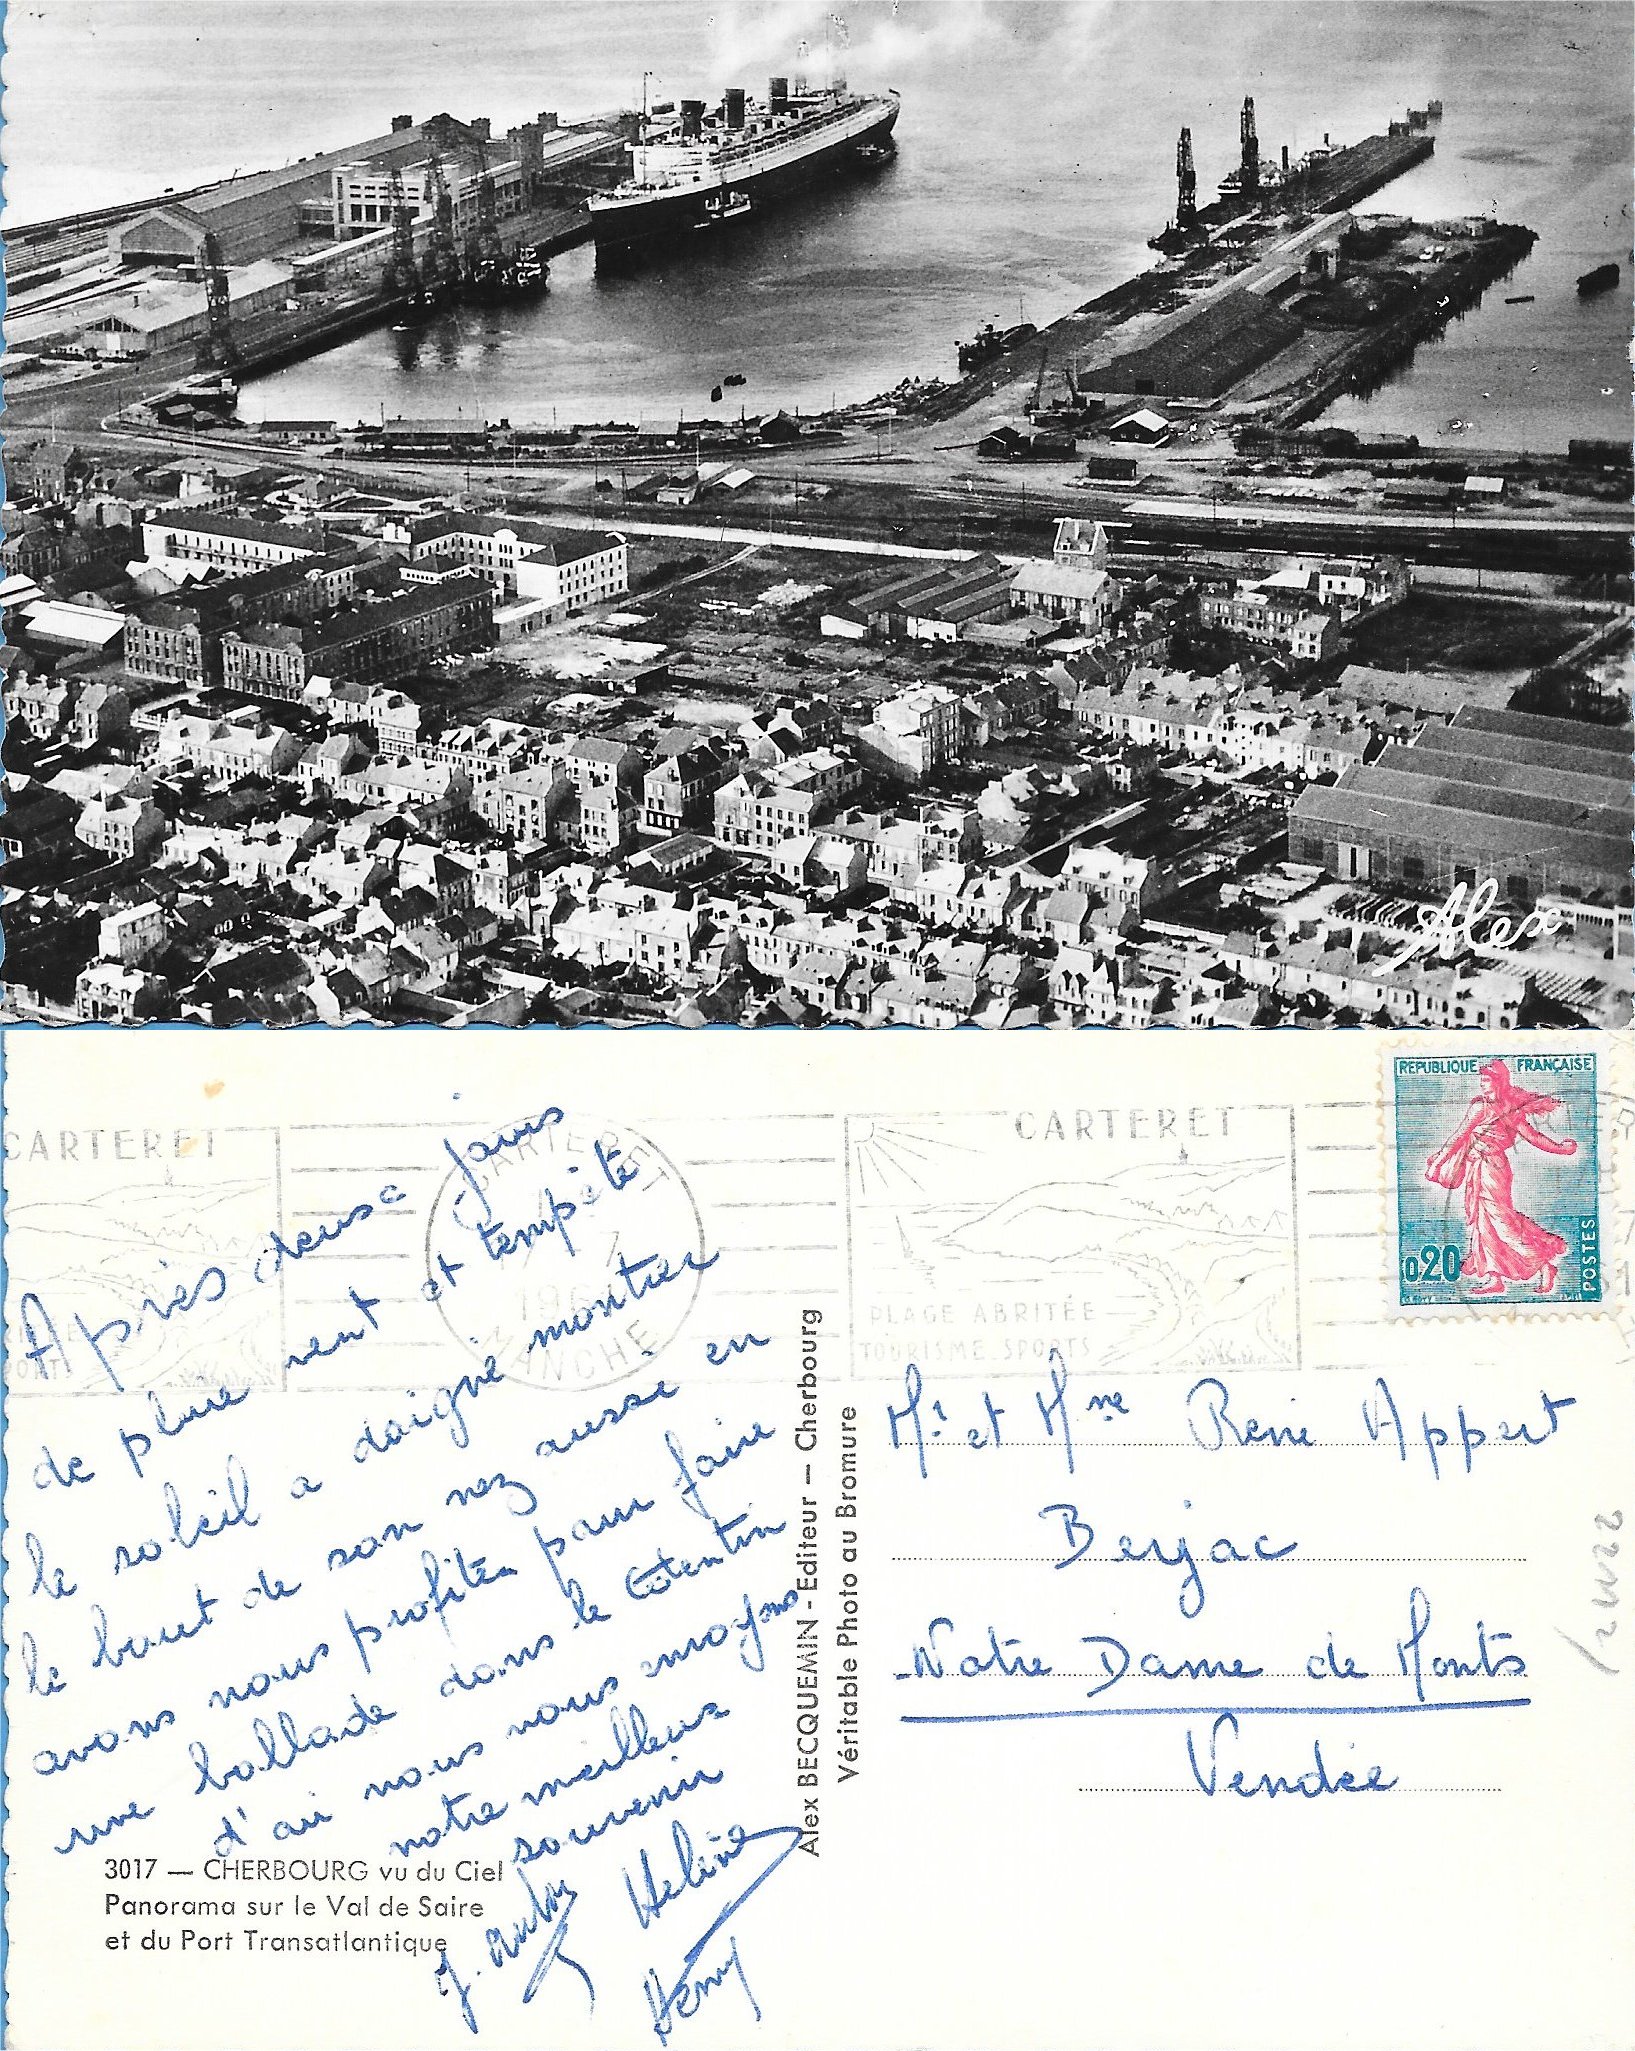 Alex
CARTERET
CARTERET
MANCHE
CARTERET
PLAGE ABRITÉE
TOURISME. SPORTS
REPUBLIQUE FRANÇAISE
0,20
POSTES
Après deux jours
de pluie vent et tempête
le soleil a daigné montrer
le bout de son nez aussi en
avons nous profités pour faire
une ballade dans le Cotentin
d'où nous vous envoyons
notre meilleur
souvenir
Helène
Henry
3017 — CHERBOURG vu du Ciel
Panorama sur le Val de Saire
et du Port Transatlantique
Alex BECQUEMIN - Editeur — Cherbourg
Véritable Photo au Bromure
Mr et Mme René Appert
Berjac
Notre Dame de Monts
Vendée